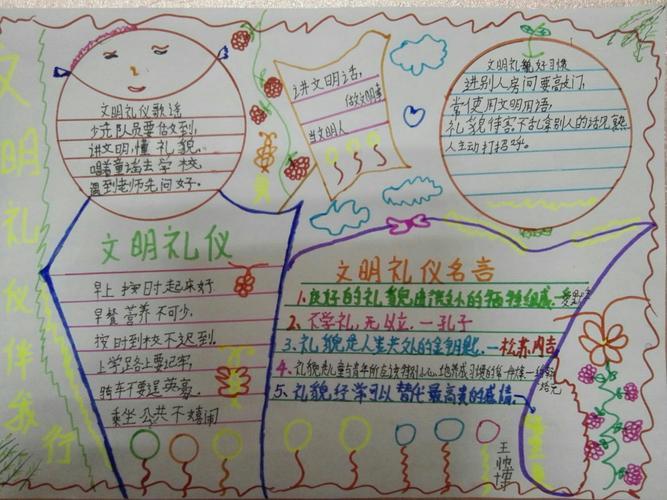 文明礼仪伴我行
文明礼仪歌谣
少先队员要做到,
讲文明,懂礼貌。
唱着童谣去学校,
遇到老师先问好。
讲文明话,
做文明事
当文明人
文明礼貌好习惯
进别人房间要敲门,
常使用文明用语,
礼貌待客,不乱拿别人的
人主动打招呼。
文明礼仪
早上按时起床好
早餐营养不可少。
按时到校不迟到。
上学路上要记牢,
骑车不要逞英豪。
乘坐公共不嬉闹
文明礼仪名言
1、良好的礼貌由微小的牺牲组成。一爱默生
2、不学礼,无以立。一孔子
3、礼貌是人类共处的金钥匙。一松苏内吉
4、礼貌是儿童与青年所应该特别小心地养成习惯的第一
5、礼貌经常可以替代最高贵的感情。
王